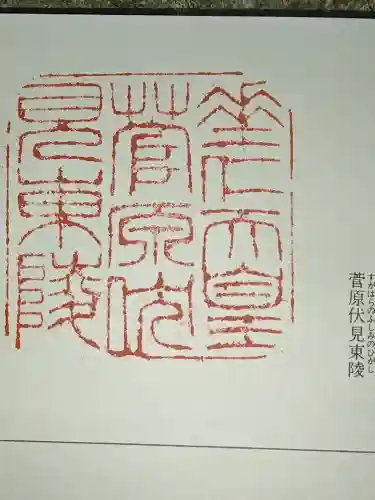 菅原伏見東陵
すがはらのふしみのひがし
垂仁天皇
菅原伏
見東陵